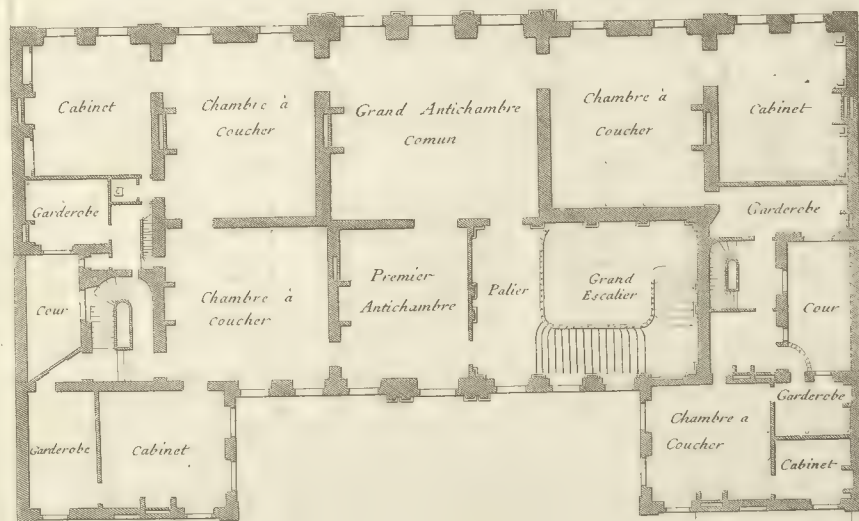 Cabinet
Chambre à
Coucher
Grand Antichambre
Comun
Chambre à
Coucher
Cabinet
Garderobe
Garderobe
Cour
Chambre à
Coucher
Premier
Antichambre
Palier
Grand
Escalier
Cour
Garderobe
Cabinet
Chambre a
Coucher
Garderobe
Cabinet